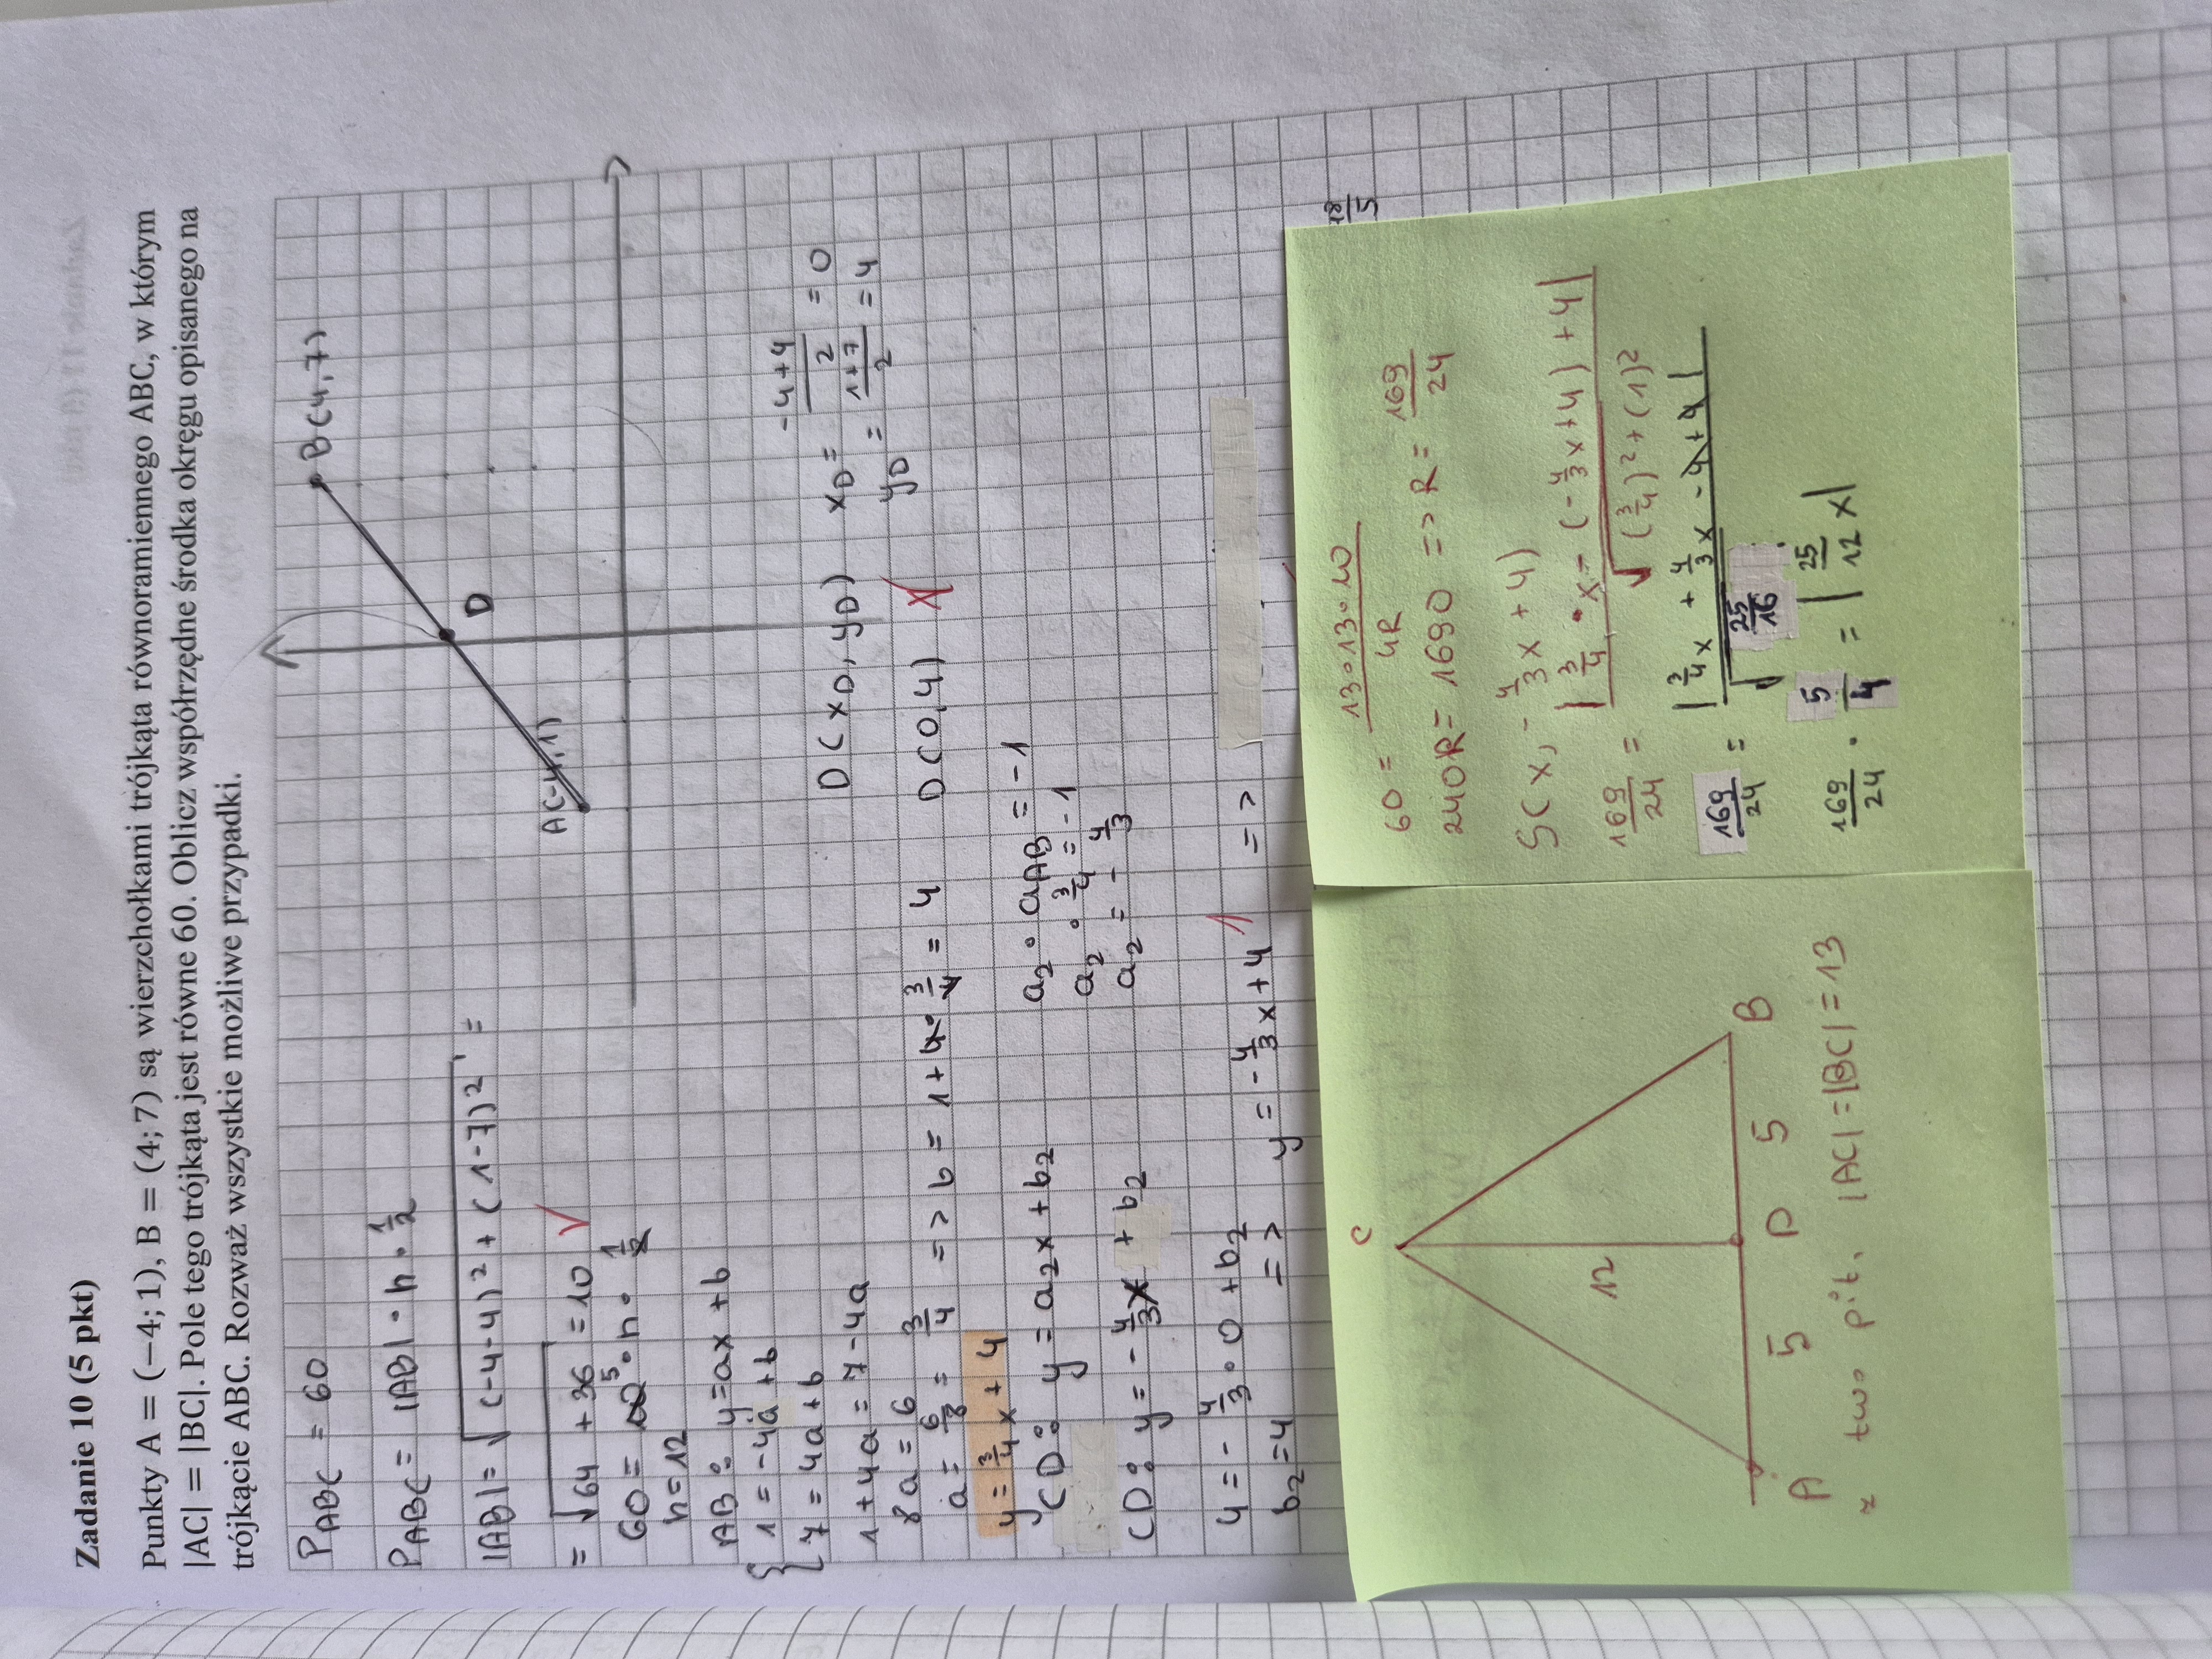 Zadanie 10 (5 pkt)
Punkty A = (−4; 1), B = (4; 7) są wierzchołkami trójkąta równoramiennego ABC, w którym
|AC| = |BC|. Pole tego trójkąta jest równe 60. Oblicz współrzędne środka okręgu opisanego na
trójkącie ABC. Rozważ wszystkie możliwe przypadki.
P ABC = 60
P ABC = |AB| · h · 1/2
|AB| = √((-4-4)² + (1-7)²) =
= √(64 + 36) = 10 √
60 = 10 5 · h · 1/2
h = 12
AB: y = ax + b
{ 1 = -4a + b
7 = 4a + b
1 + 4a = 7 - 4a
8a = 6
a = 6/8 = 3/4 => b = 1 + 4 · 3/4 = 4
y = 3/4x + 4
A(-4,1)
B(4,7)
D
D(xD, yD) xD = (-4+4)/2 = 0
yD = (1+7)/2 = 4
D(0,4)
CD: y = a₂x + b₂
a₂ · aAB = -1
a₂ · 3/4 = -1
a₂ = -4/3
CD: y = -4/3x + b₂
4 = -4/3 · 0 + b₂
b₂ = 4 => y = -4/3x + 4 1 =>
18/5
C
12
A 5 P 5 B
z tw. pit. |AC| = |BC| = 13
60 = (13 · 13 · 10)/4R
240R = 1690 => R = 169/24
S(x, -4/3x + 4)
169/24 = |3/4 · x - (-4/3x + 4) + 4| / √((3/4)² + (1)²
169/24 = |3/4x + 4/3x - 4 + 4| / √(25/16)
169/24 · 5/4 = |25/12 x|